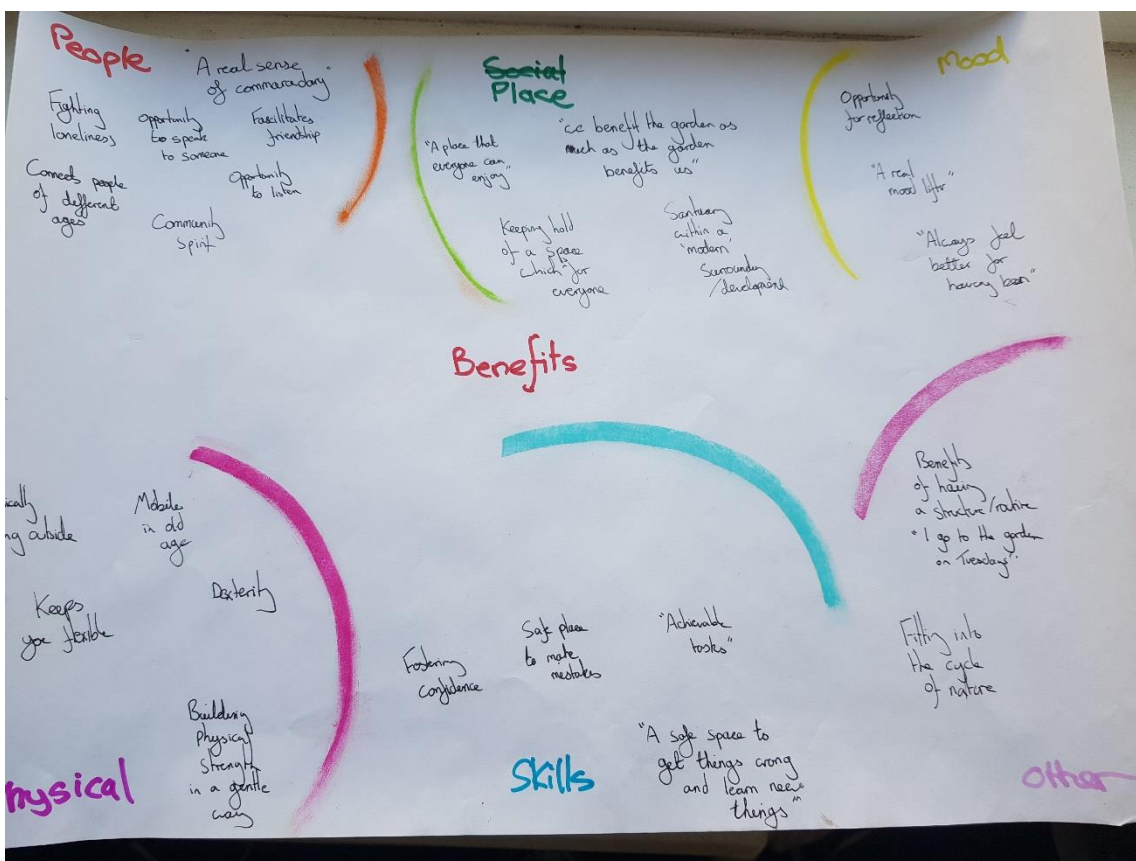 People
"A real sense
of commaradary"
Fighting
loneliness
Opportunity
to speak
to someone
Fascilitates
friendship
Connects people
of different
ages
Opportunity
to listen
Community
Spirit
Social
Place
"A place that
everyone can
enjoy"
"we benefit the garden as
much as the garden
benefits us"
Keeping hold
of a space
which is for
everyone
Santuary
within a
'modern'
Surrounding
/development
Mood
Opportunity
for reflection
"A real
mood lifter"
"Always feel
better for
having been"
Benefits
ically
ng outside
Mobile
in old
age
Dexterity
Keeps
you flexible
Building
Physical
Strength
in a gentle
way
hysical
Fostering
confidence
Safe place
to make
mistakes
"Achievable
tasks"
"A safe space to
get things wrong
and learn new
things"
Skills
Benefits
of having
a structure/routine
"I go to the garden
on Tuesdays".
Fitting into
the cycle
of nature
Other